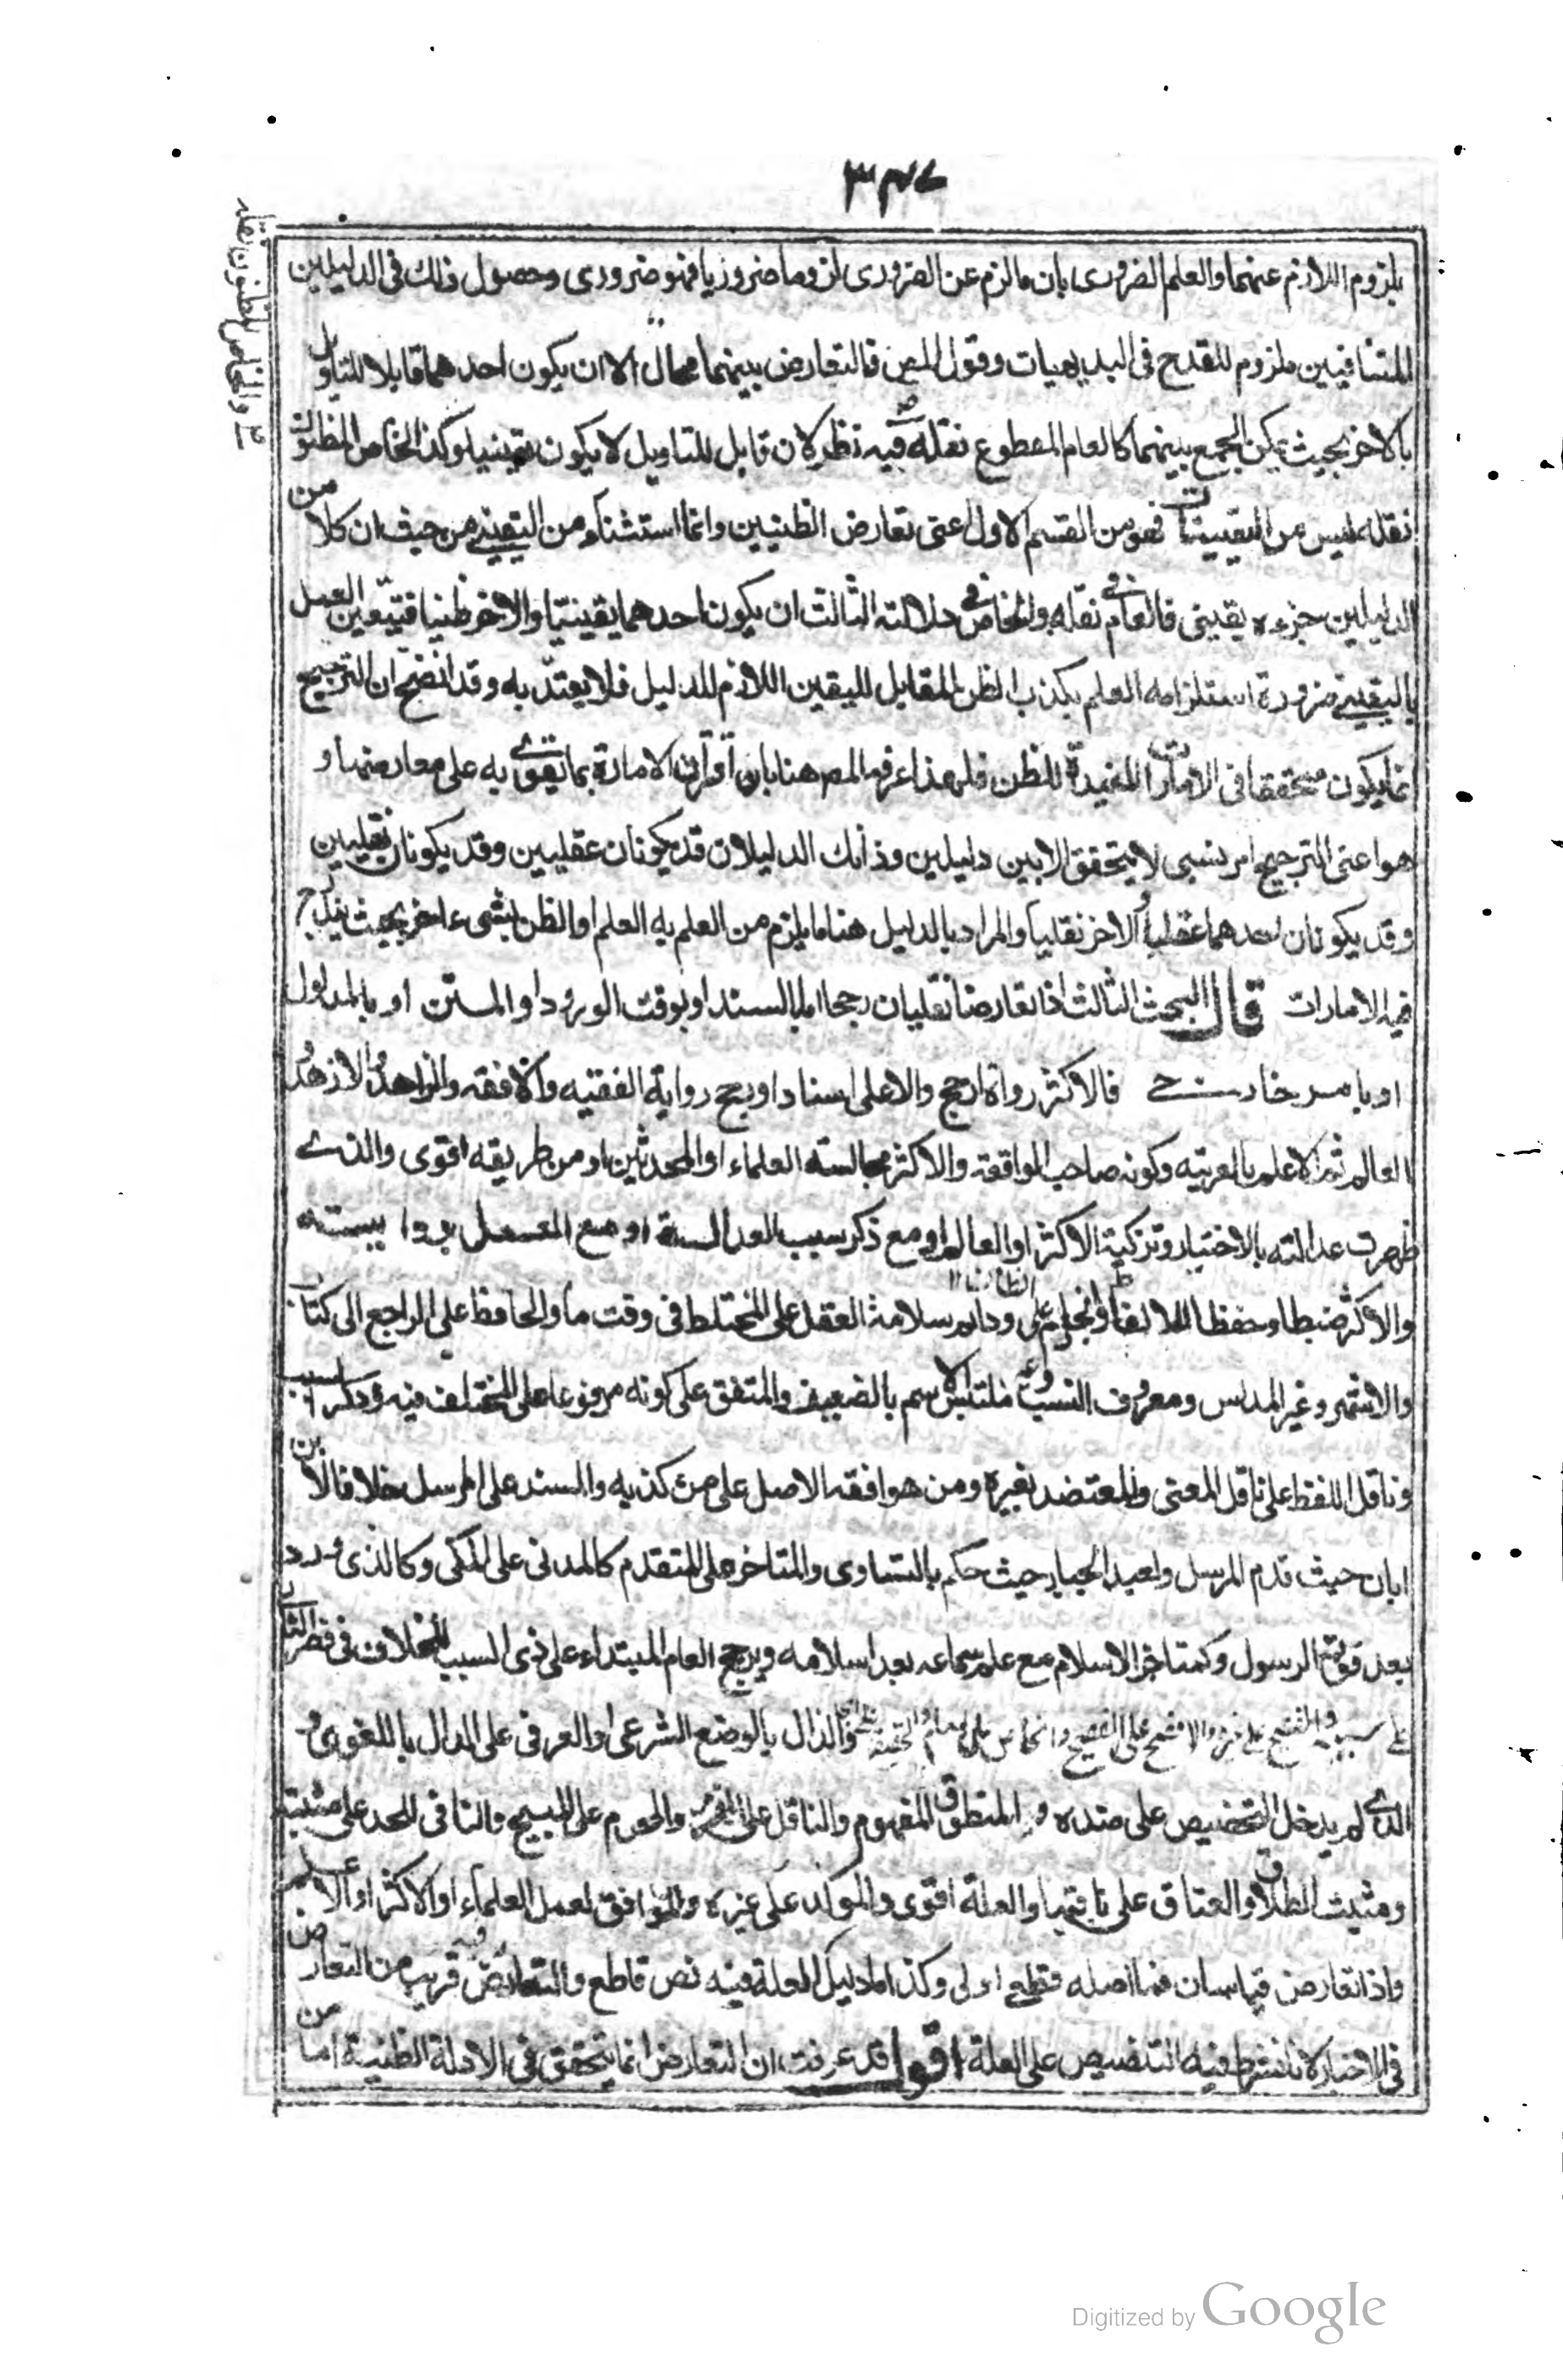 ٣٤٧
والخاص المظنون نقله
بلزوم اللازم عنهما والعلم الضروری بان ما لزم عن الضروری لزوما ضروریا فهو ضروری وحصول ذلك فی الدلیلین
المتنافیین ملزوم للقدح فی البدیهیات وقول المص فالتعارض بینهما محال الا ان یکون احدهما قابلا للتاویل
بالاخر بحیث یمکن الجمع بینهما کالعام المقطوع نقله فیه نظر لان قابل للتاویل لا یکون یقینیا وکذا الخاص المظنون
نقله لیس من الیقینیات فهو من القسم الاول اعنی تعارض الظنیین وانما استثناه من الیقینی من حیث ان کلا من
الدلیلین جزءه یقینی فالعام فی نقله والخاص فی دلالته الثالث ان یکون احدهما یقینیا والاخر ظنیا فیتعین العمل
بالیقینی ضرورة استلزامه العلم بکذب الظن المقابل للیقین اللازم للدلیل فلا یعتد به وقد اتضح ان الترجیح
انما یکون متحققا فی الامارات المفیدة للظن فلهذا عرفه المص هنا بانه اقتران الامارة بما تقوی به علی معارضها و
هو اعنی الترجیح امر نسبی لا یتحقق الا بین دلیلین وذانك الدلیلان قد یکونان عقلیین وقد یکونان نقلیین
وقد یکونان احدهما عقلیا والاخر نقلیا والمراد بالدلیل هنا ما یلزم من العلم به العلم او الظن بشیء اخر بحیث یندرج
فیه الامارات قال البحث الثالث اذا تعارضا نقلیان رجحا اما بالسند او بوقت الورود او المتن او بالمدلول
او بامر خارجی فالاکثر رواة ارجح والاعلی اسنادا ویرجح روایة الفقیه والافقه والزاهد والازهد
العالم ثم الاعلم بالعربیة وکونه صاحب الواقعة والاکثر مجالسة العلماء او المحدثین او من طریقه اقوی والذی
ظهرت عدالته بالاختبار وتزکیة الاکثر او العالم او مع ذکر سبب العدالة او مع العمل بروایته
والاکثر ضبطا وحفظا لالفاظ والجازم علی الظان ودائم سلامة العقل علی المختلط فی وقت ما والحافظ علی الراجع الی کتاب
والاشهر وغیر المدلس ومعروف النسب وغیر ملتبس الاسم بالضعیف والمتفق علی کونه مرفوعا علی المختلف فیه وذکر السبب
وناقل اللفظ علی ناقل المعنی والمعتضد بغیره ومن هو افقه الاصل علی من کذبه والمسند علی المرسل خلافا لابن
ابان حیث قدم المرسل ولعبد الجبار حیث حکم بالتساوی والمتاخر علی المتقدم کالمدنی علی المکی وکالذی ورد
بعد قوة الرسول وکمتاخر الاسلام مع علم سماعه بعد اسلامه ویرجح العام المبتداء علی ذی السبب للخلاف فی قصر الثانی
علی سببه والفصیح علی غیره والافصح علی الفصیح والخاص علی العام والحقیقة والدال بالوضع الشرعی او العرفی علی الدال باللغوی و
الذی لم یدخل التخصیص علی ضده والمنطوق المفهوم والناقل علی المقرر والمحرم علی المبیح والنافی للحد علی مثبته
ومثبت الطلاق والعتاق علی نافیهما والعلة اقوی والموکد علی غیره والموافق لعمل العلماء او الاکثر او الاعلم
واذا تعارض قیاسان فما اصله قطعی اولی وکذا ما دلیل العلة فیه نص قاطع والتعارض فیه قریب من التعارض
فی الاخبار لانا نشترط فیه التنصیص علی العلة اقول قد عرفت ان التعارض انما یتحقق فی الادلة الظنیة اما من
Digitized by Google